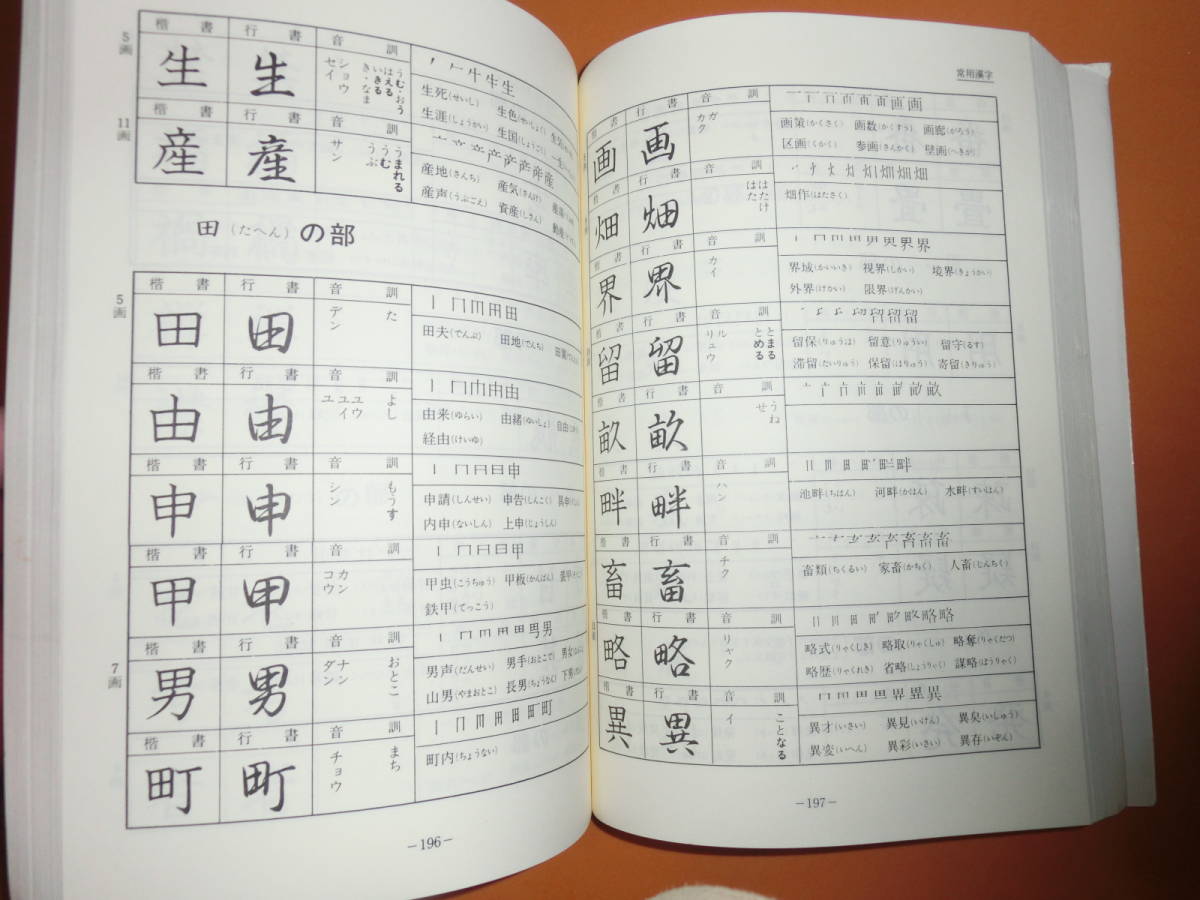 5画
楷書 行書 音 訓
生 生
セイ
ショウ
き・なま
いきる
はえる
うむ・おう
生死(せいし) 生色(せいしょく)
生涯(しょうがい) 生国(しょうごく)
11画
楷書 行書 音 訓
産 産
サン
うぶ
うむ
うまれる
産地(さんち) 産気(さんけ)
産声(うぶごえ) 資産(しさん)
田(たへん)の部
5画
楷書 行書 音 訓
田 田
デン
た
田夫(でんぷ) 田地(でんち)
楷書 行書 音 訓
由 由
ユ ユイ ユウ
よし
由来(ゆらい) 由緒(ゆいしょ) 自由
経由(けいゆ)
楷書 行書 音 訓
申 申
シン
もうす
申請(しんせい) 申告(しんこく) 具申
内申(ないしん) 上申(じょうしん)
楷書 行書 音 訓
甲 甲
コウ
カン
甲虫(こうちゅう) 甲板(かんぱん) 装甲
鉄甲(てっこう)
7画
楷書 行書 音 訓
男 男
ダン
ナン
おとこ
男声(だんせい) 男手(おとこで) 男女
山男(やまおとこ) 長男(ちょうなん) 下男
楷書 行書 音 訓
町 町
チョウ
まち
町内(ちょうない)
―196―
常用漢字
楷書 行書 音 訓
画 画
カク
ガ
画策(かくさく) 画数(かくすう) 画廊(がろう)
区画(くかく) 参画(さんかく) 壁画(へきが)
楷書 行書 音 訓
畑 畑
はた
はたけ
畑作(はたさく)
楷書 行書 音 訓
界 界
カイ
界域(かいいき) 視界(しかい) 境界(きょうかい)
外界(げかい) 限界(げんかい)
楷書 行書 音 訓
留 留
リュウ
ル
とめる
とまる
留保(りゅうほ) 留意(りゅうい) 留守(るす)
滞留(たいりゅう) 保留(ほりゅう) 寄留(きりゅう)
楷書 行書 音 訓
畝 畝
せ
うね
楷書 行書 音 訓
畔 畔
ハン
池畔(ちはん) 河畔(かはん) 水畔(すいはん)
楷書 行書 音 訓
畜 畜
チク
畜類(ちくるい) 家畜(かちく) 人畜(じんちく)
楷書 行書 音 訓
略 略
リャク
略式(りゃくしき) 略取(りゃくしゅ) 略奪(りゃくだつ)
略歴(りゃくれき) 省略(しょうりゃく) 謀略(ぼうりゃく)
楷書 行書 音 訓
異 異
イ
ことなる
異才(いさい) 異見(いけん) 異臭(いしゅう)
異変(いへん) 異彩(いさい) 異存(いぞん)
―197―